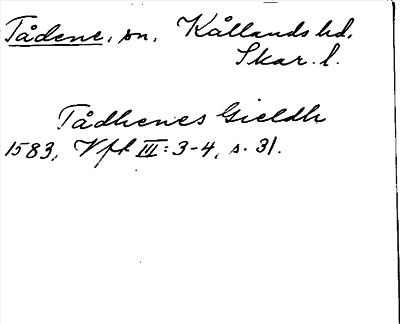 Tådene, sn, Kållands hd,
Skar. l.
Tådhenes Gieldh
1583, Vft III: 3-4, s. 31.